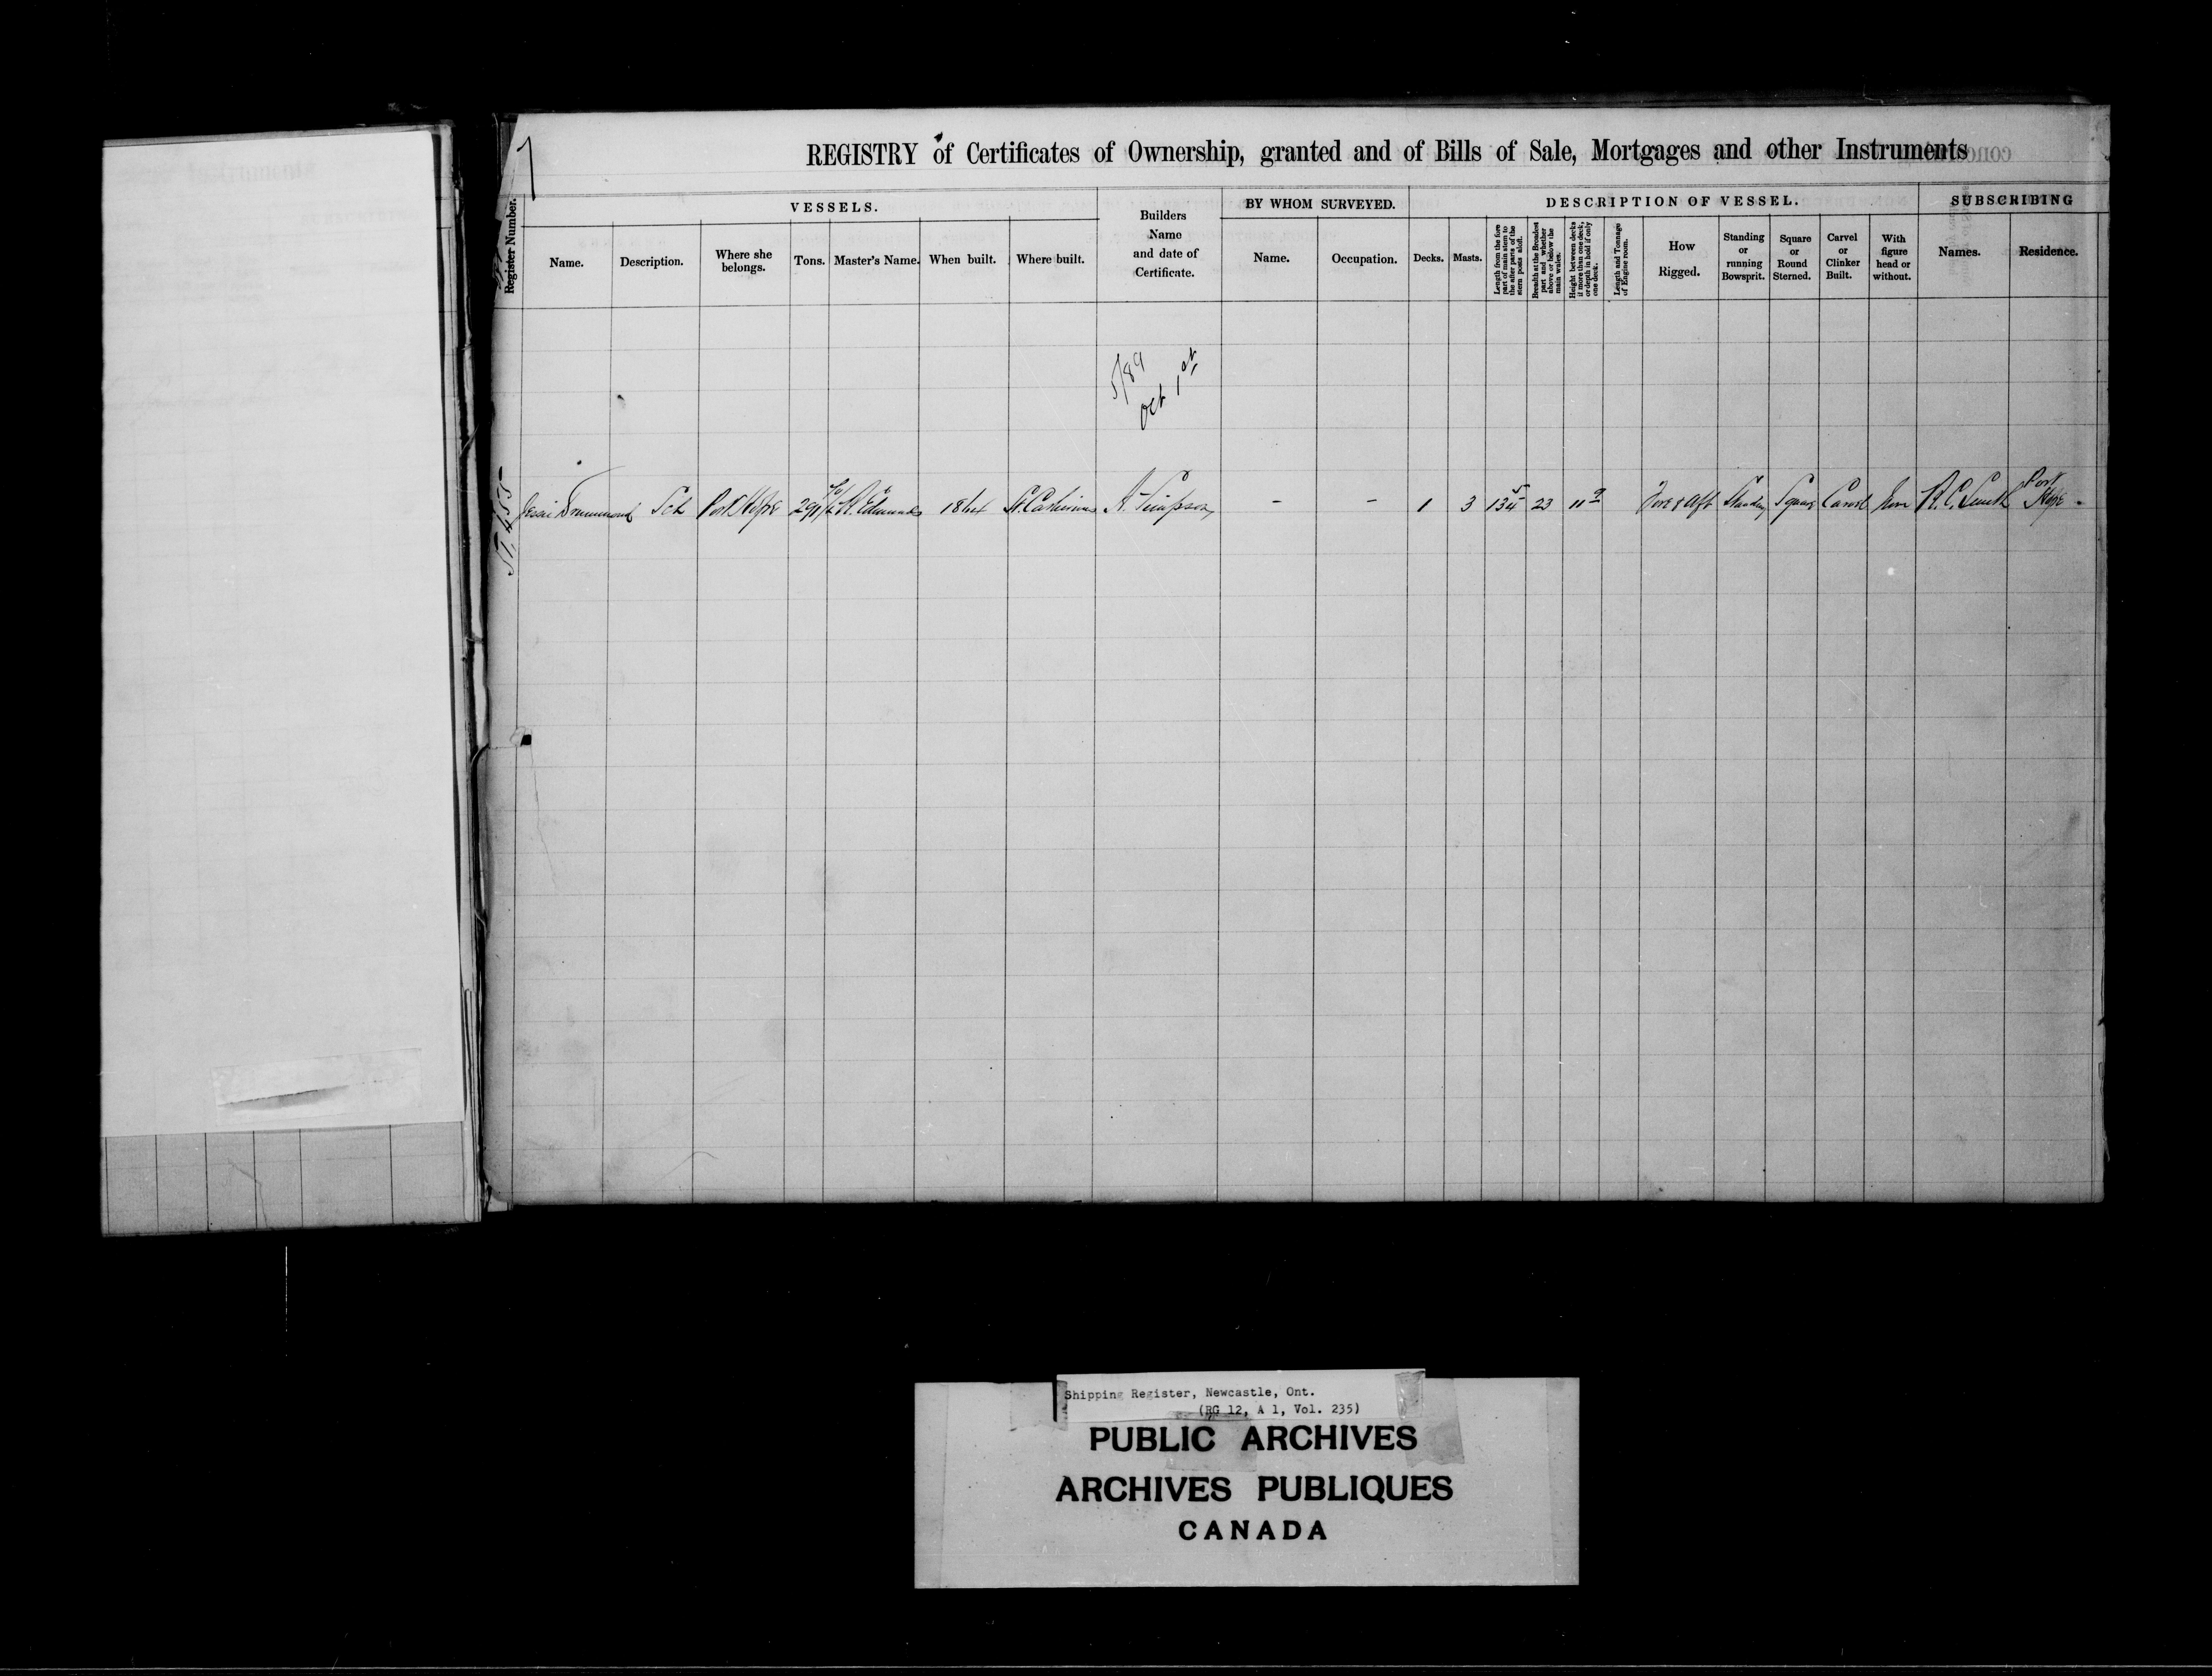 7
REGISTRY of Certificates of Ownership, granted and of Bills of Sale, Mortgages and other Instruments
Register Number.
VESSELS.
Builders Name and date of Certificate.
BY WHOM SURVEYED.
DESCRIPTION OF VESSEL.
SUBSCRIBING
Name.
Description.
Where she belongs.
Tons.
Master's Name.
When built.
Where built.
Name.
Occupation.
Decks.
Masts.
Length from the fore part of main stem to the after parts of the stern posts aloft.
Breadth at the Broadest part and whether above or below the main wales.
Height between decks if more than one deck, or depth in hold if only one deck.
Length and Tonnage of Engine room.
How Rigged.
Standing or running Bowsprit.
Square or Round Sterned.
Carvel or Clinker Built.
With figure head or without.
Names.
Residence.
5/89
Oct 1st
Jessie Drummond Sch Port Hope 291 Edmunds 1864 St. Catherines A. Simpson - - 1 3 134 5 23 11 9 Fore & Aft Standing Square Carvel None R. C. Smith Port Hope -
Shipping Register, Newcastle, Ont.
(RG 12, A 1, Vol. 235)
PUBLIC ARCHIVES
ARCHIVES PUBLIQUES
CANADA